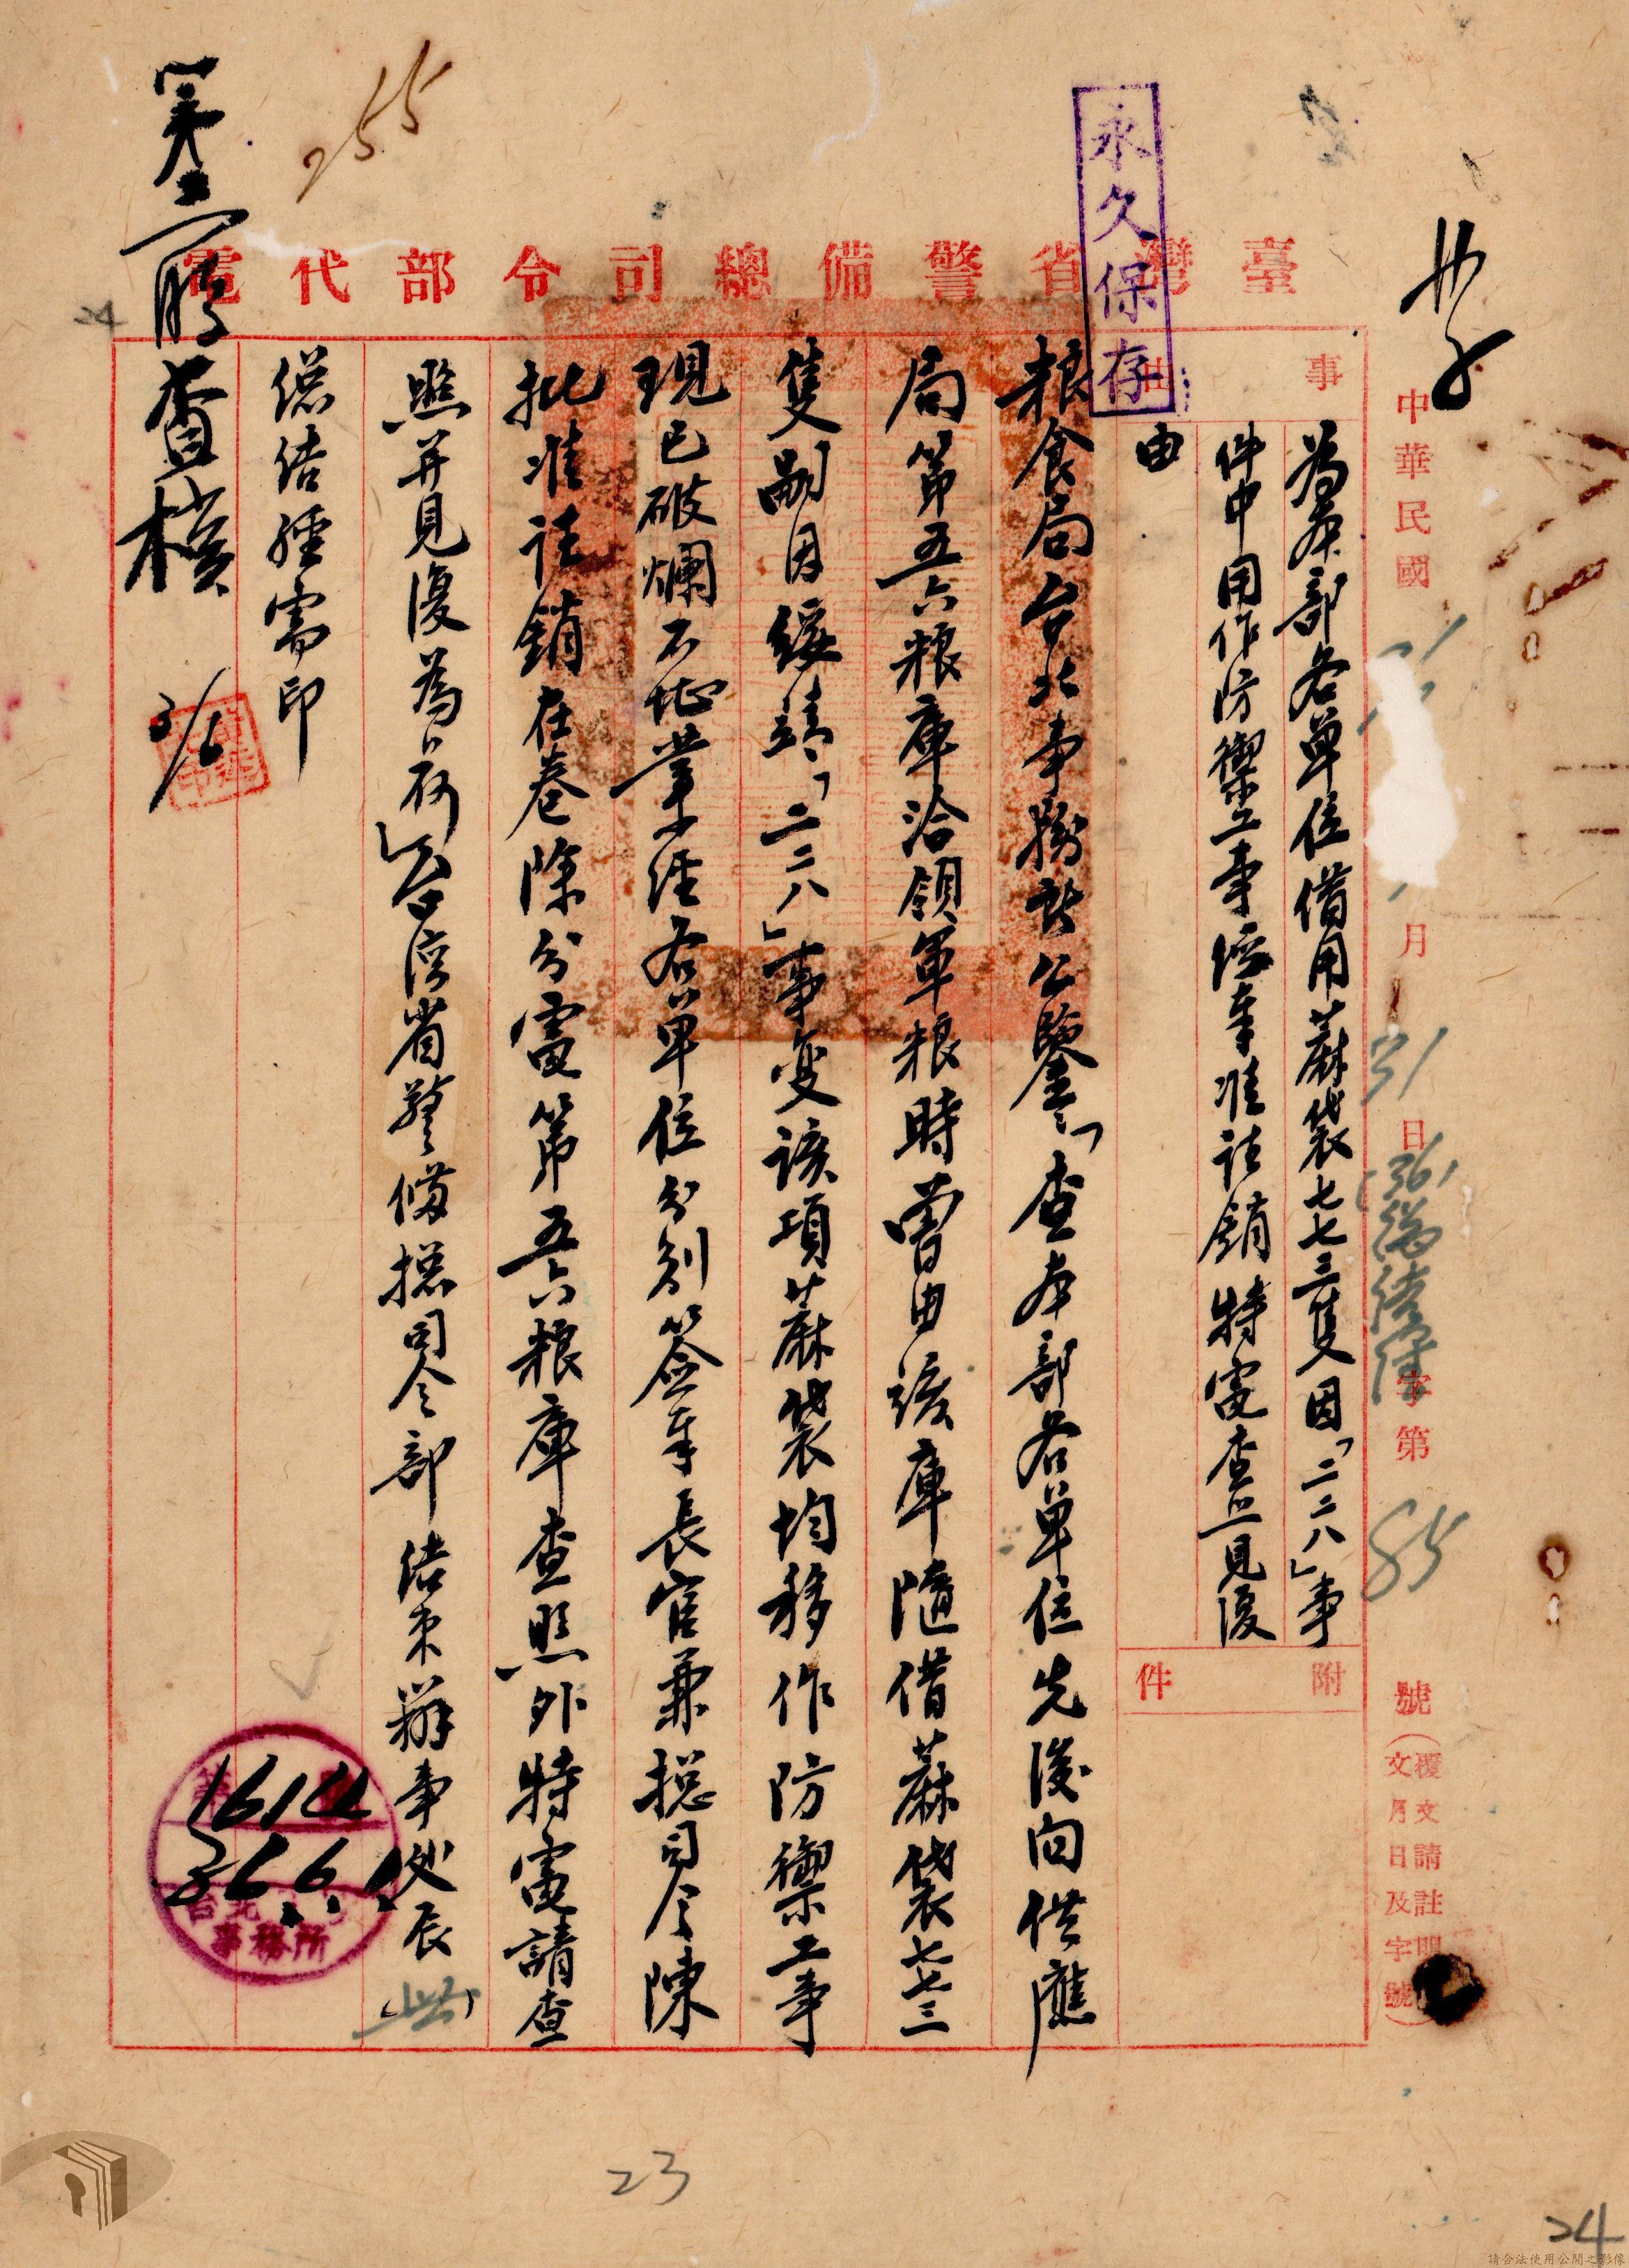 永久保存
臺灣省警備總司令部代電
中華民國 月31日(36)總結需字第85號(覆文請註明文月日及字號)
事由
為本部各單位借用蔴袋七七三隻因「二二八」事
件中用作防禦工事經奉准註銷特電查照見復
由
附件
粮食局台北事務所公鑒「查本部各單位先後向供應
局第五六粮庫洽領軍粮時曾由該庫隨借蔴袋七七三
隻嗣因綏靖「二二八」事变該項蔴袋均移作防禦工事
現已破爛不堪業經各單位分別簽奉長官兼總司令陳
批准註銷在卷除分電第五六粮庫查照外特電請查
照并見復為荷」台湾省警備総司令部结束辦事処辰(世)
総结經需印
查核
1614
36.6.1
台北
事務所
255
24
23
24
請合法使用公開之影像